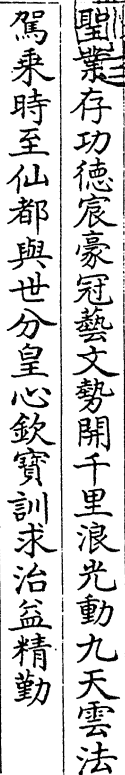 聖業存功德宸豪冠藝文勢開千里浪光動九天雲法
駕乘時至仙都與世分皇心欽寶訓求治益精勤